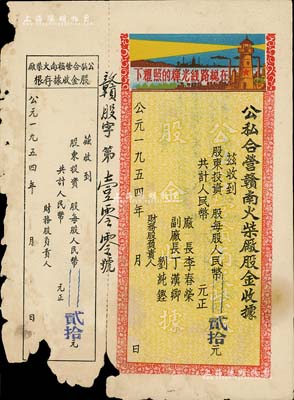 在總路線光輝的照耀下
公私合營贛南火柴廠股金收據
茲收到
股東投資 股每股人民幣貳拾元
共計人民幣 元正
廠長李春榮
副廠長丁漢卿
財務股負責人
公元一九五四年 月 日
股金收據
贛股字第壹零零號
公私合營贛南火柴廠
股金收據存根
茲收到
股東投資 股每股人民幣貳拾元
共計人民幣 元正
財務股負責人
公元一九五四年 月 日